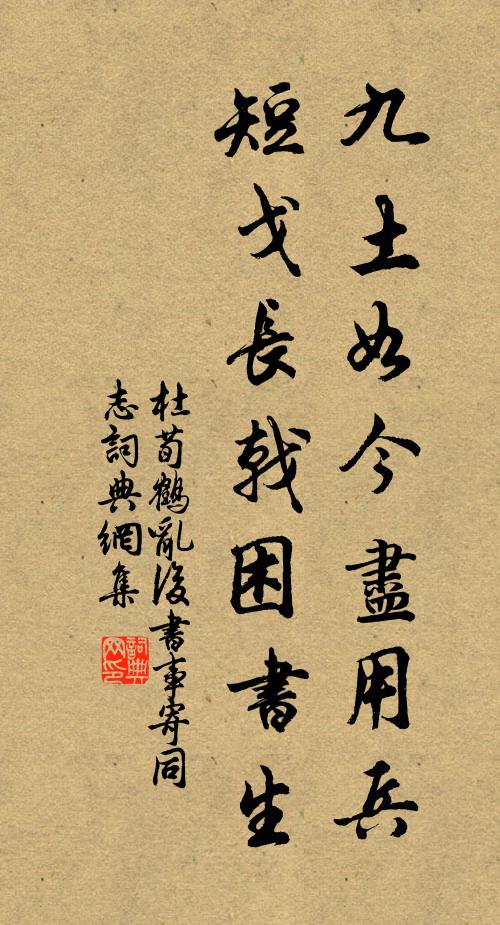 九土如今盡用兵
短戈長戟困書生
杜荀鶴亂後書事寄同
志詞典網集
詞典
网印